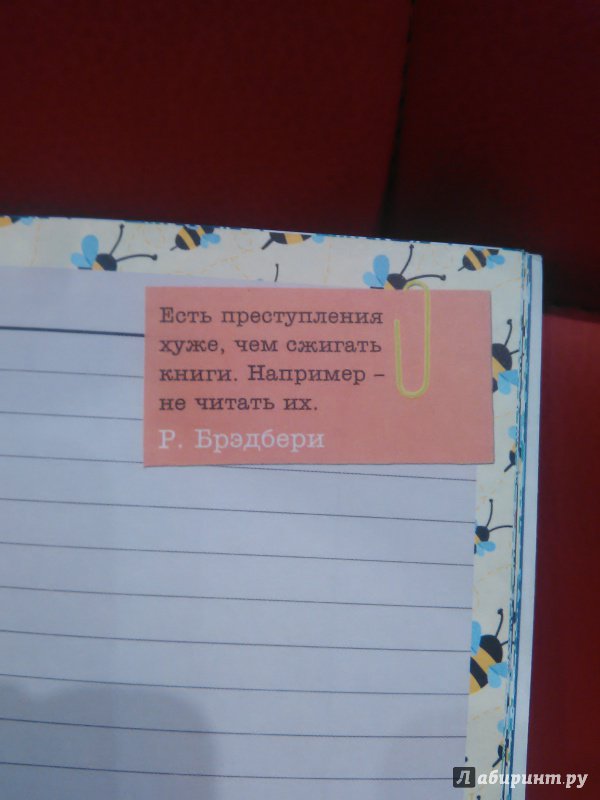 Есть преступления
хуже, чем сжигать
книги. Например –
не читать их.
Р. Брэдбери
Лабиринт.ру